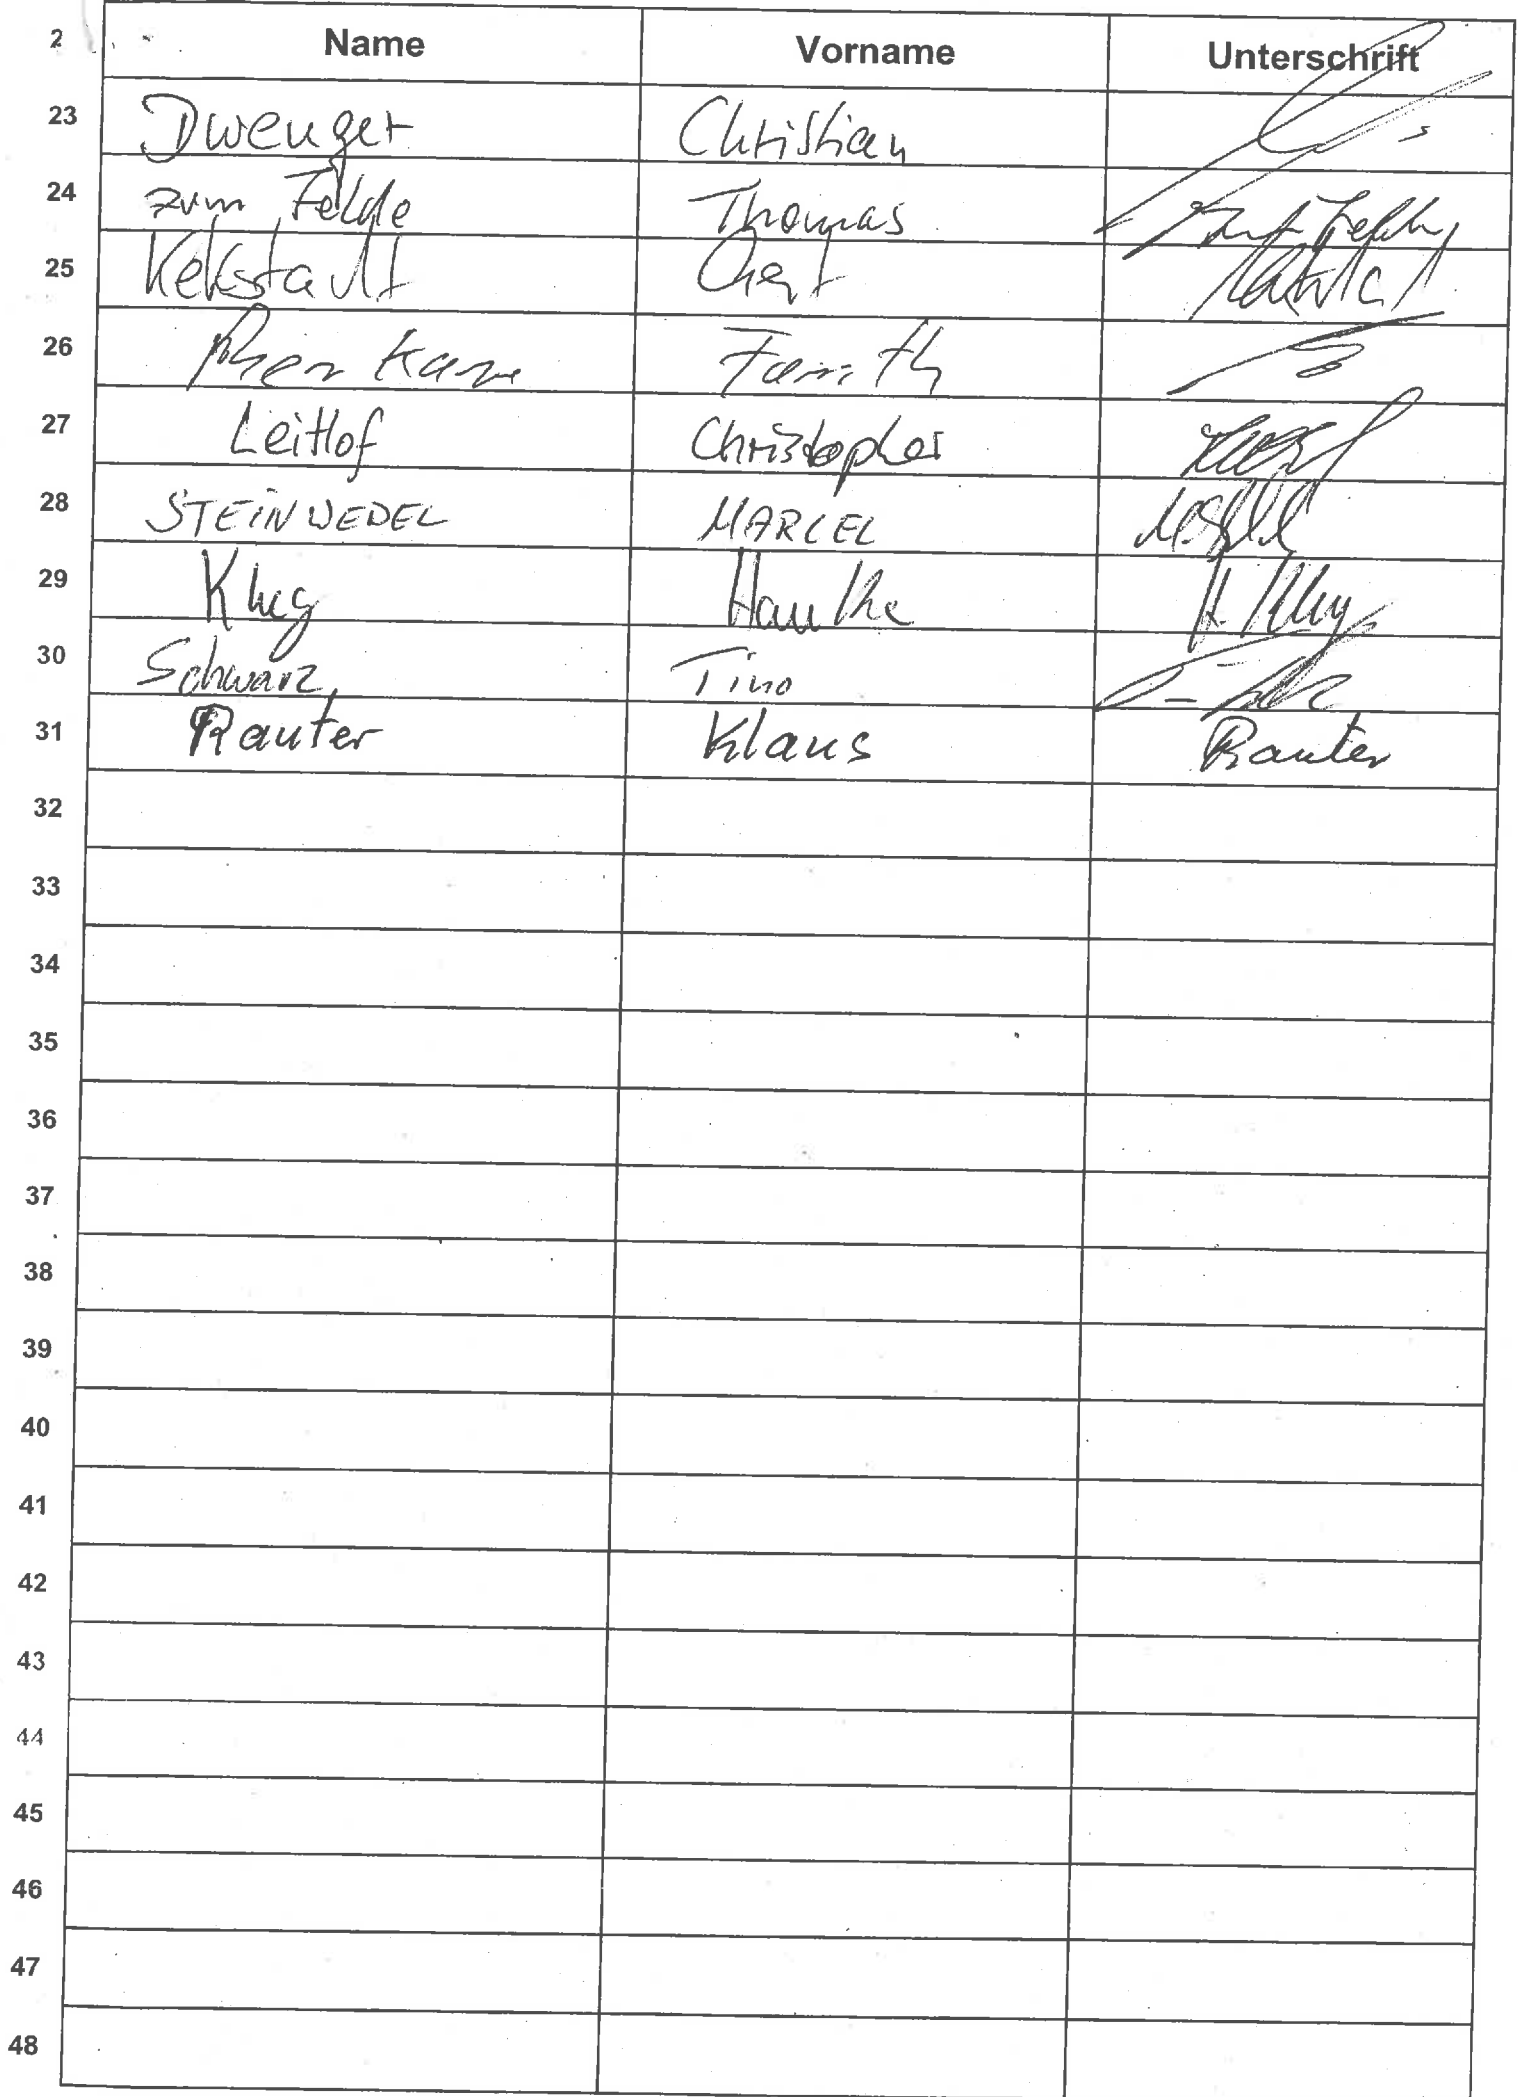 2 Name Vorname Unterschrift
23 Dwenger Christian
24 zum Felde Thomas
25 Gert
26
27 Leitlof Christopher
28 STEINWEDEL MARCEL
29 Klug Hauke H. Klug
30 Schwarz Tino
31 Rauter Klaus Rauter
32
33
34
35
36
37
38
39
40
41
42
43
44
45
46
47
48